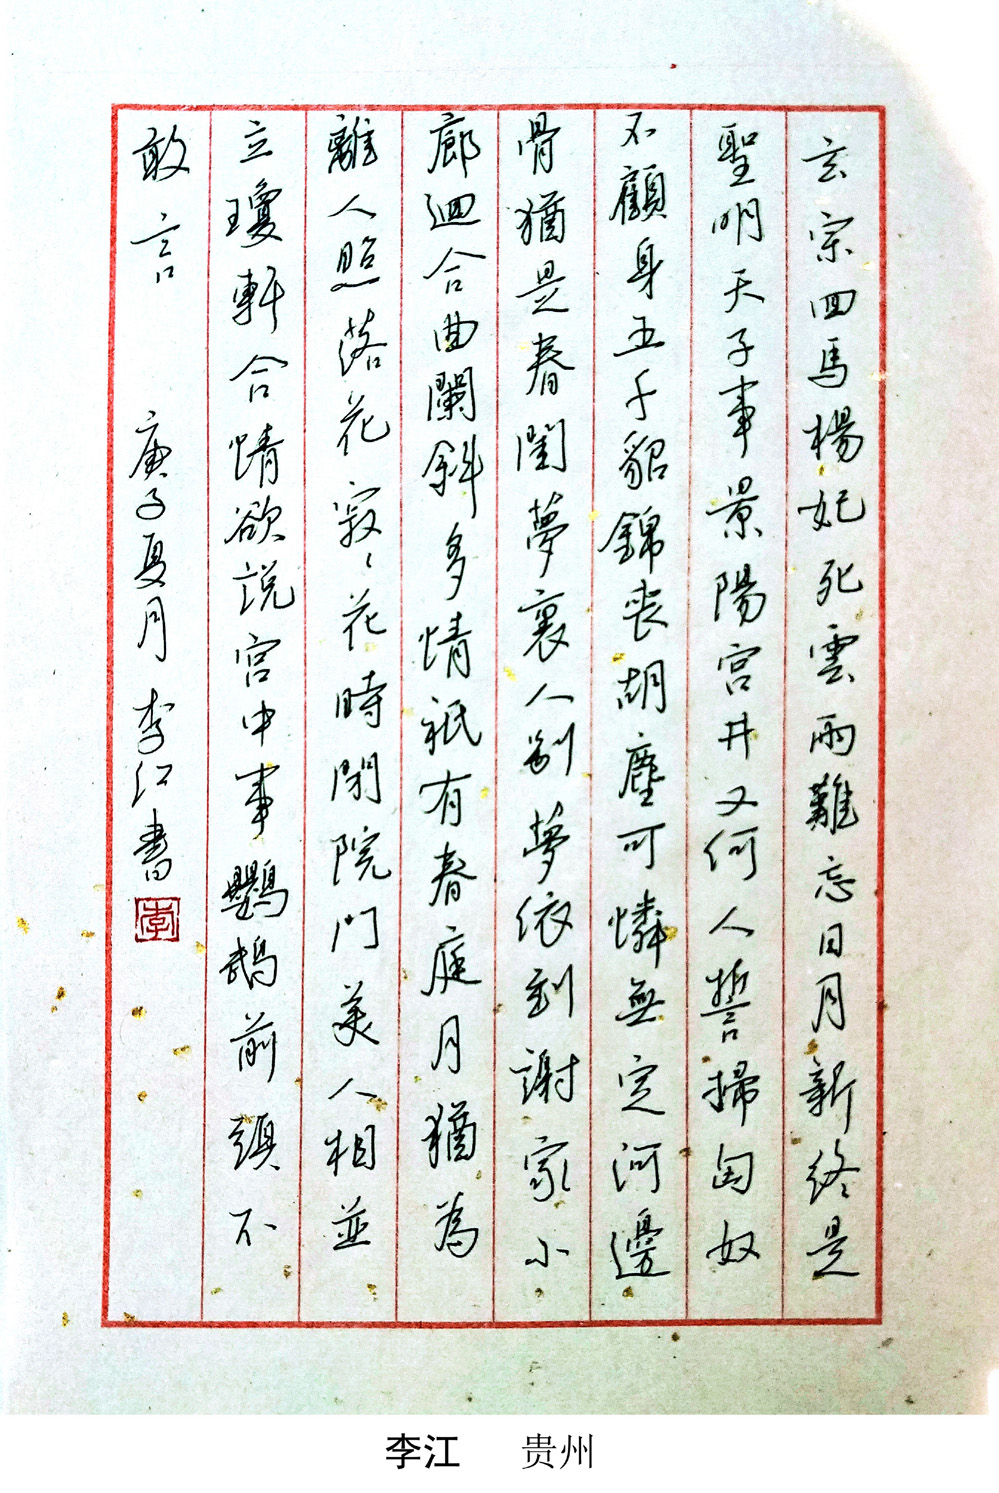 玄宗回馬楊妃死雲雨難忘日月新終是
聖明天子事景陽宮井又何人誓掃匈奴
不顧身五千貂錦喪胡塵可憐無定河邊
骨猶是春閨夢裏人別夢依到謝家小
廊迴合曲闌斜多情祇有春庭月猶為
離人照落花寂〻花時閉院門美人相並
立瓊軒含情欲説宮中事鸚鵡前頭不
敢言 庚子夏月李江書
李
李江 贵州